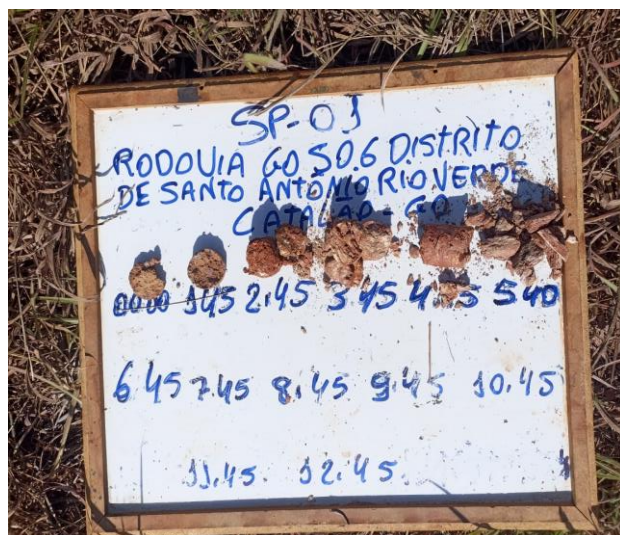 SP-01
RODOVIA GO 506 DISTRITO
DE SANTO ANTÔNIO RIO VERDE
CATALÃO-GO
00.00 1.45 2.45 3.45 4 5 5.40
6.45 7.45 8.45 9.45 10.45
11.45. 12.45.